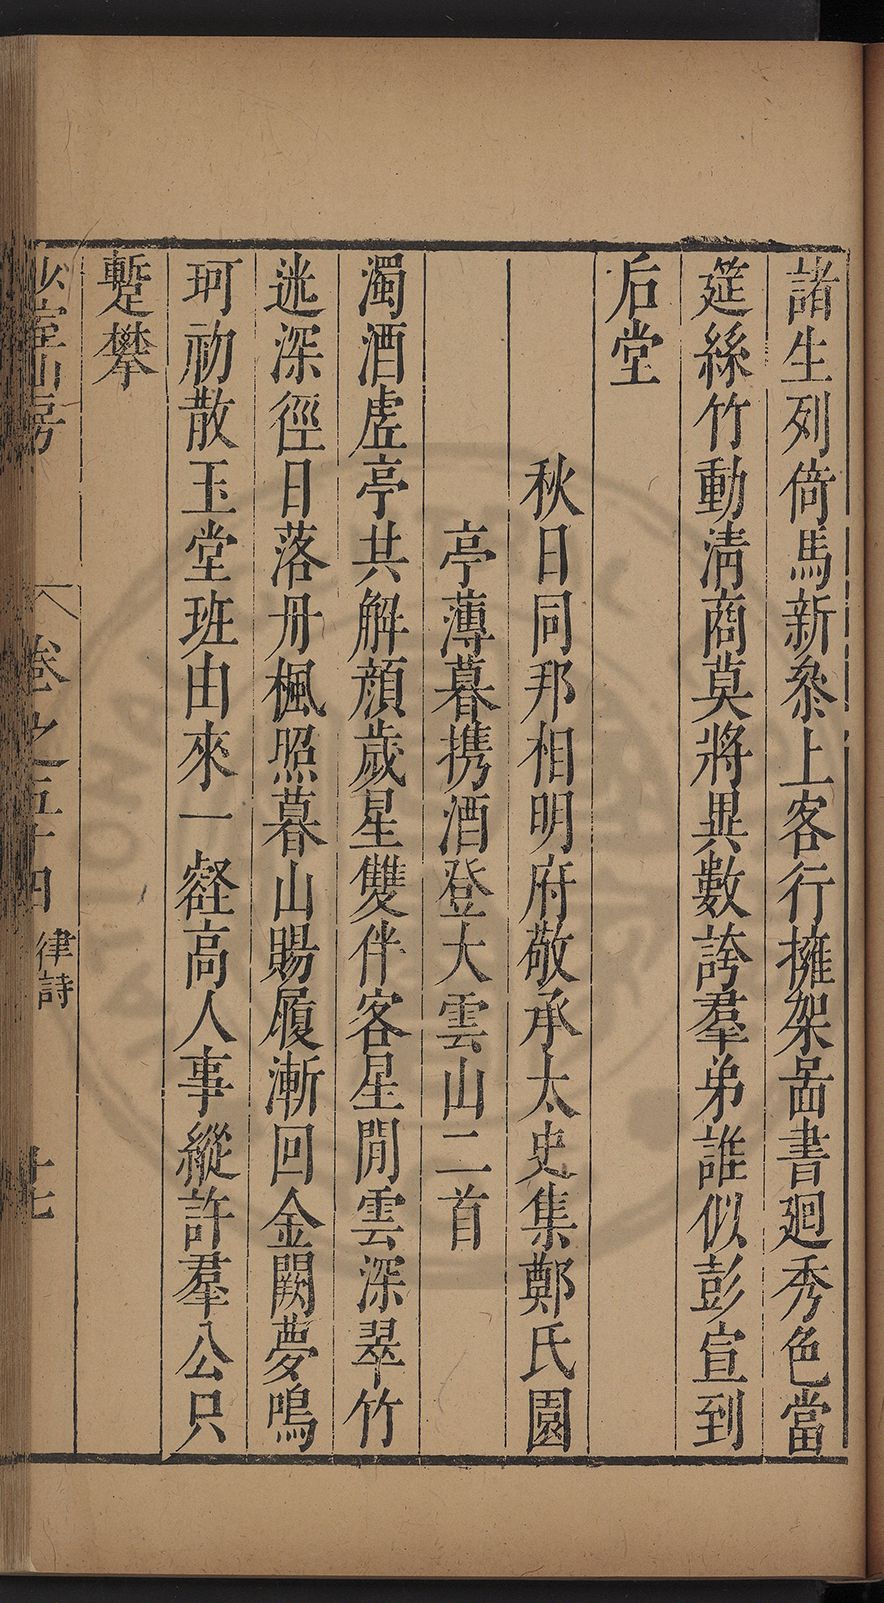 諸生列倚馬新叅上客行擁架啚書廻秀色當
筵絲竹動清商莫將異數誇羣弟誰似彭宣到
后堂
秋日同邦相明府敬承太史集鄭氏園
亭薄暮携酒登大雲山二首
濁酒虗亭共解顔歲星雙伴客星閒雲深翠竹
迷深徑日落丹楓照暮山賜履漸回金闕夢鳴
珂初散玉堂班由來一壑高人事縱許羣公只
蹔攀
少室山房
卷之五十四 律詩
十七